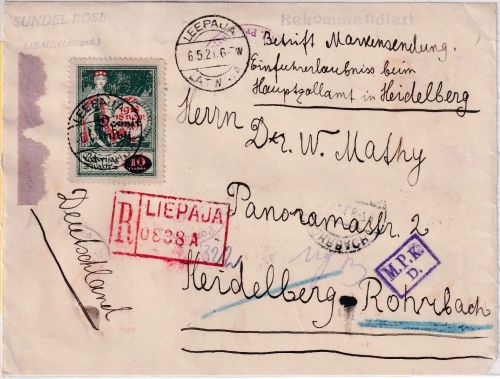 SUNDEL ROSE
LIBAU, (Lettland.)
Rekommendiert
LEEPAJA
6.5.21.
Betrifft Markensendung.
Einfuhrerlaubniss beim
Hauptzollamt in Heidelberg
LEEPAJA
10
Herrn
Dr. W. Mathy
R LIEPAJA
0838 A
Panoramastr. 2
322
Deutschland
M.P.K.
D.
Heidelberg-Rohrbach